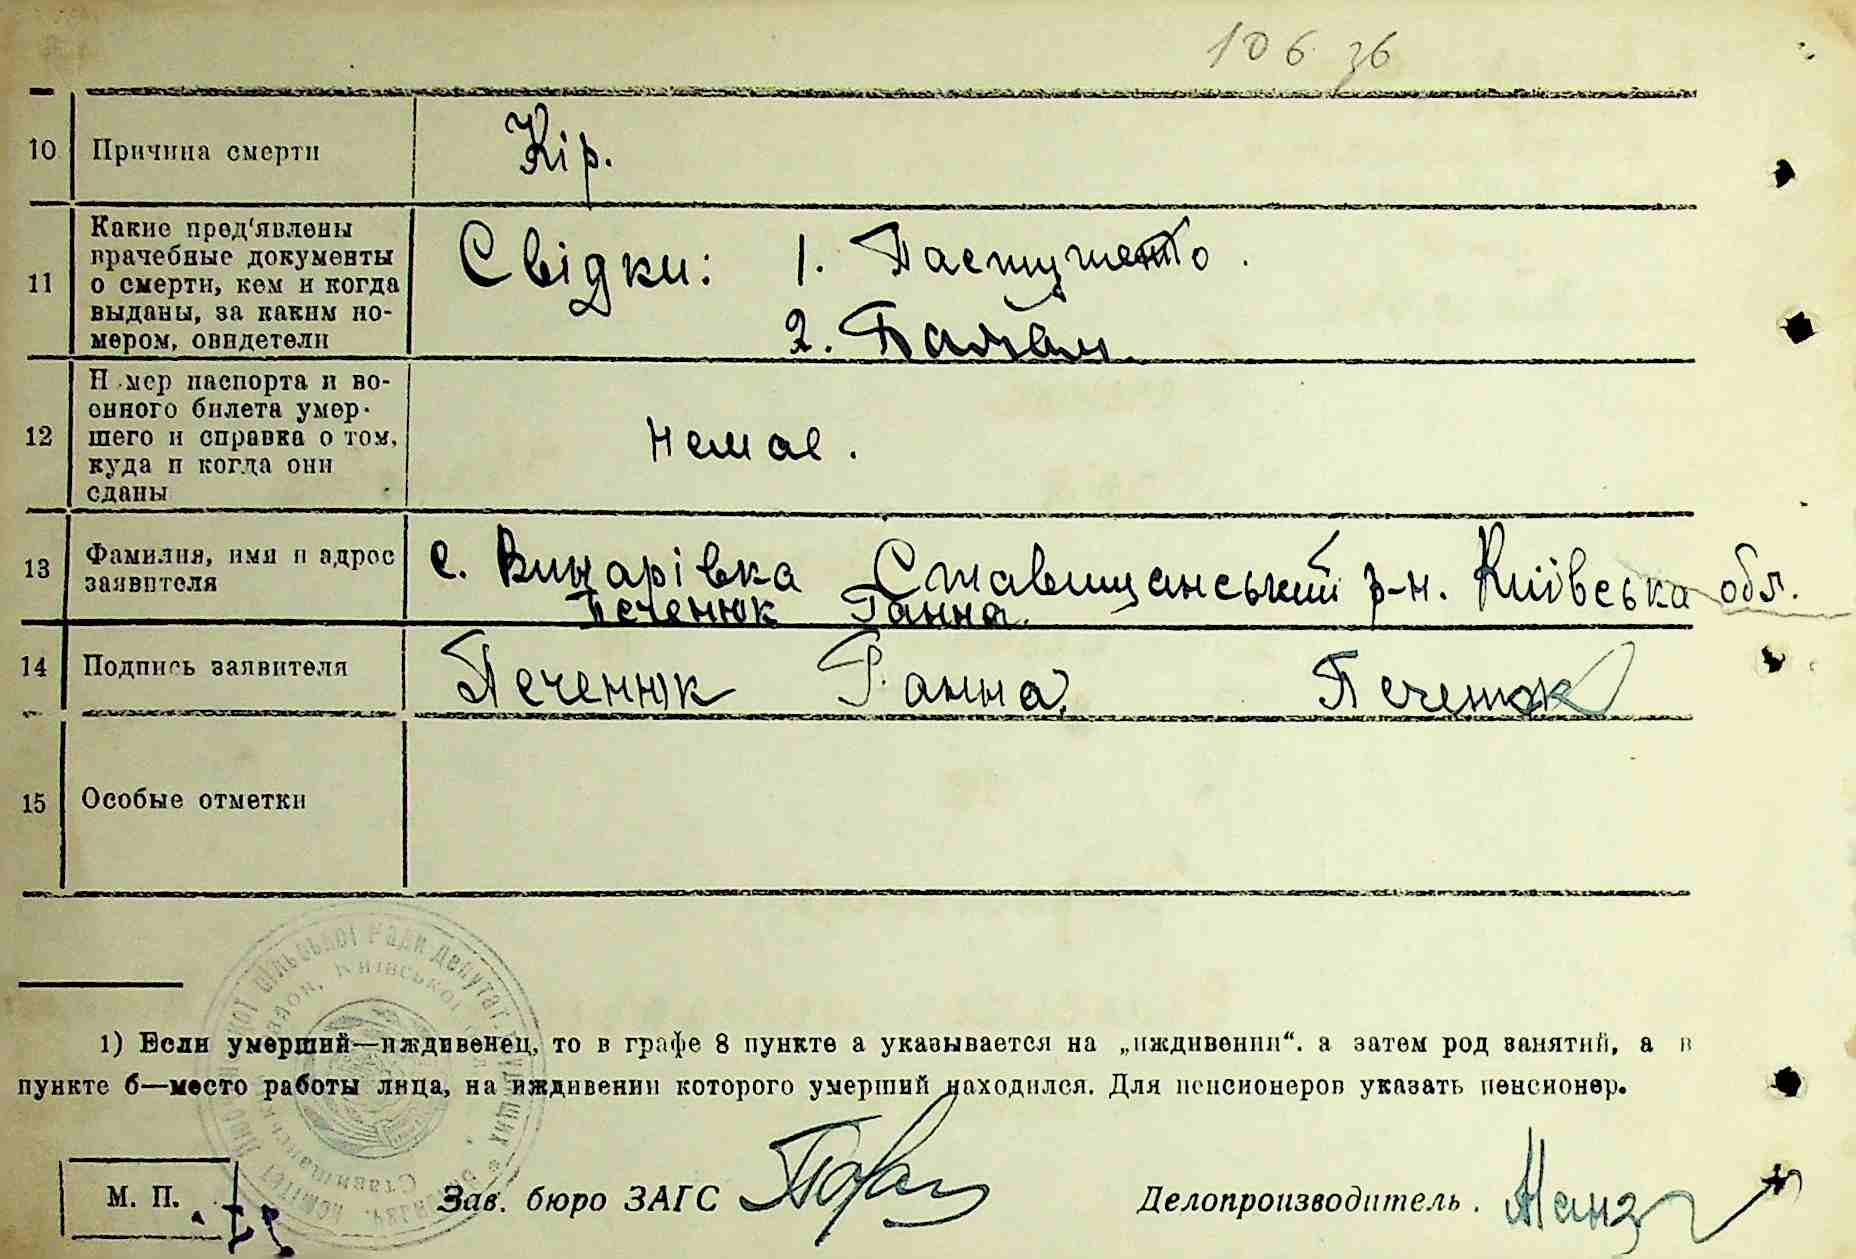 106 36
10 Причина смерти Кір.
11 Какие пред'явлены
врачебные документы
о смерти, кем и когда
выданы, за каким но-
мером, свидетели
Свідки: 1. Пастушенко.
2.
12 Н мер паспорта и во-
енного билета умер-
шего и справка о том,
куда и когда они
сданы
Немає.
13 Фамилия, имя и адрес
заявителя
с. Винарівка Ставищанський р-н. Київська обл.
Печенюк Ганна.
14 Подпись заявителя Печенюк Ганна. Печенюк
15 Особые отметки
сільської Ради депутат. трудящих
Київської
Ставищанськ
1) Если умерший—иждивенец, то в графе 8 пункте а указывается на „иждивении“. а затем род занятий, а в
пункте б—место работы лица, на иждивении которого умерший находился. Для пенсионеров указать пенсионер.
М. П. Зав. бюро ЗАГС Делопроизводитель.